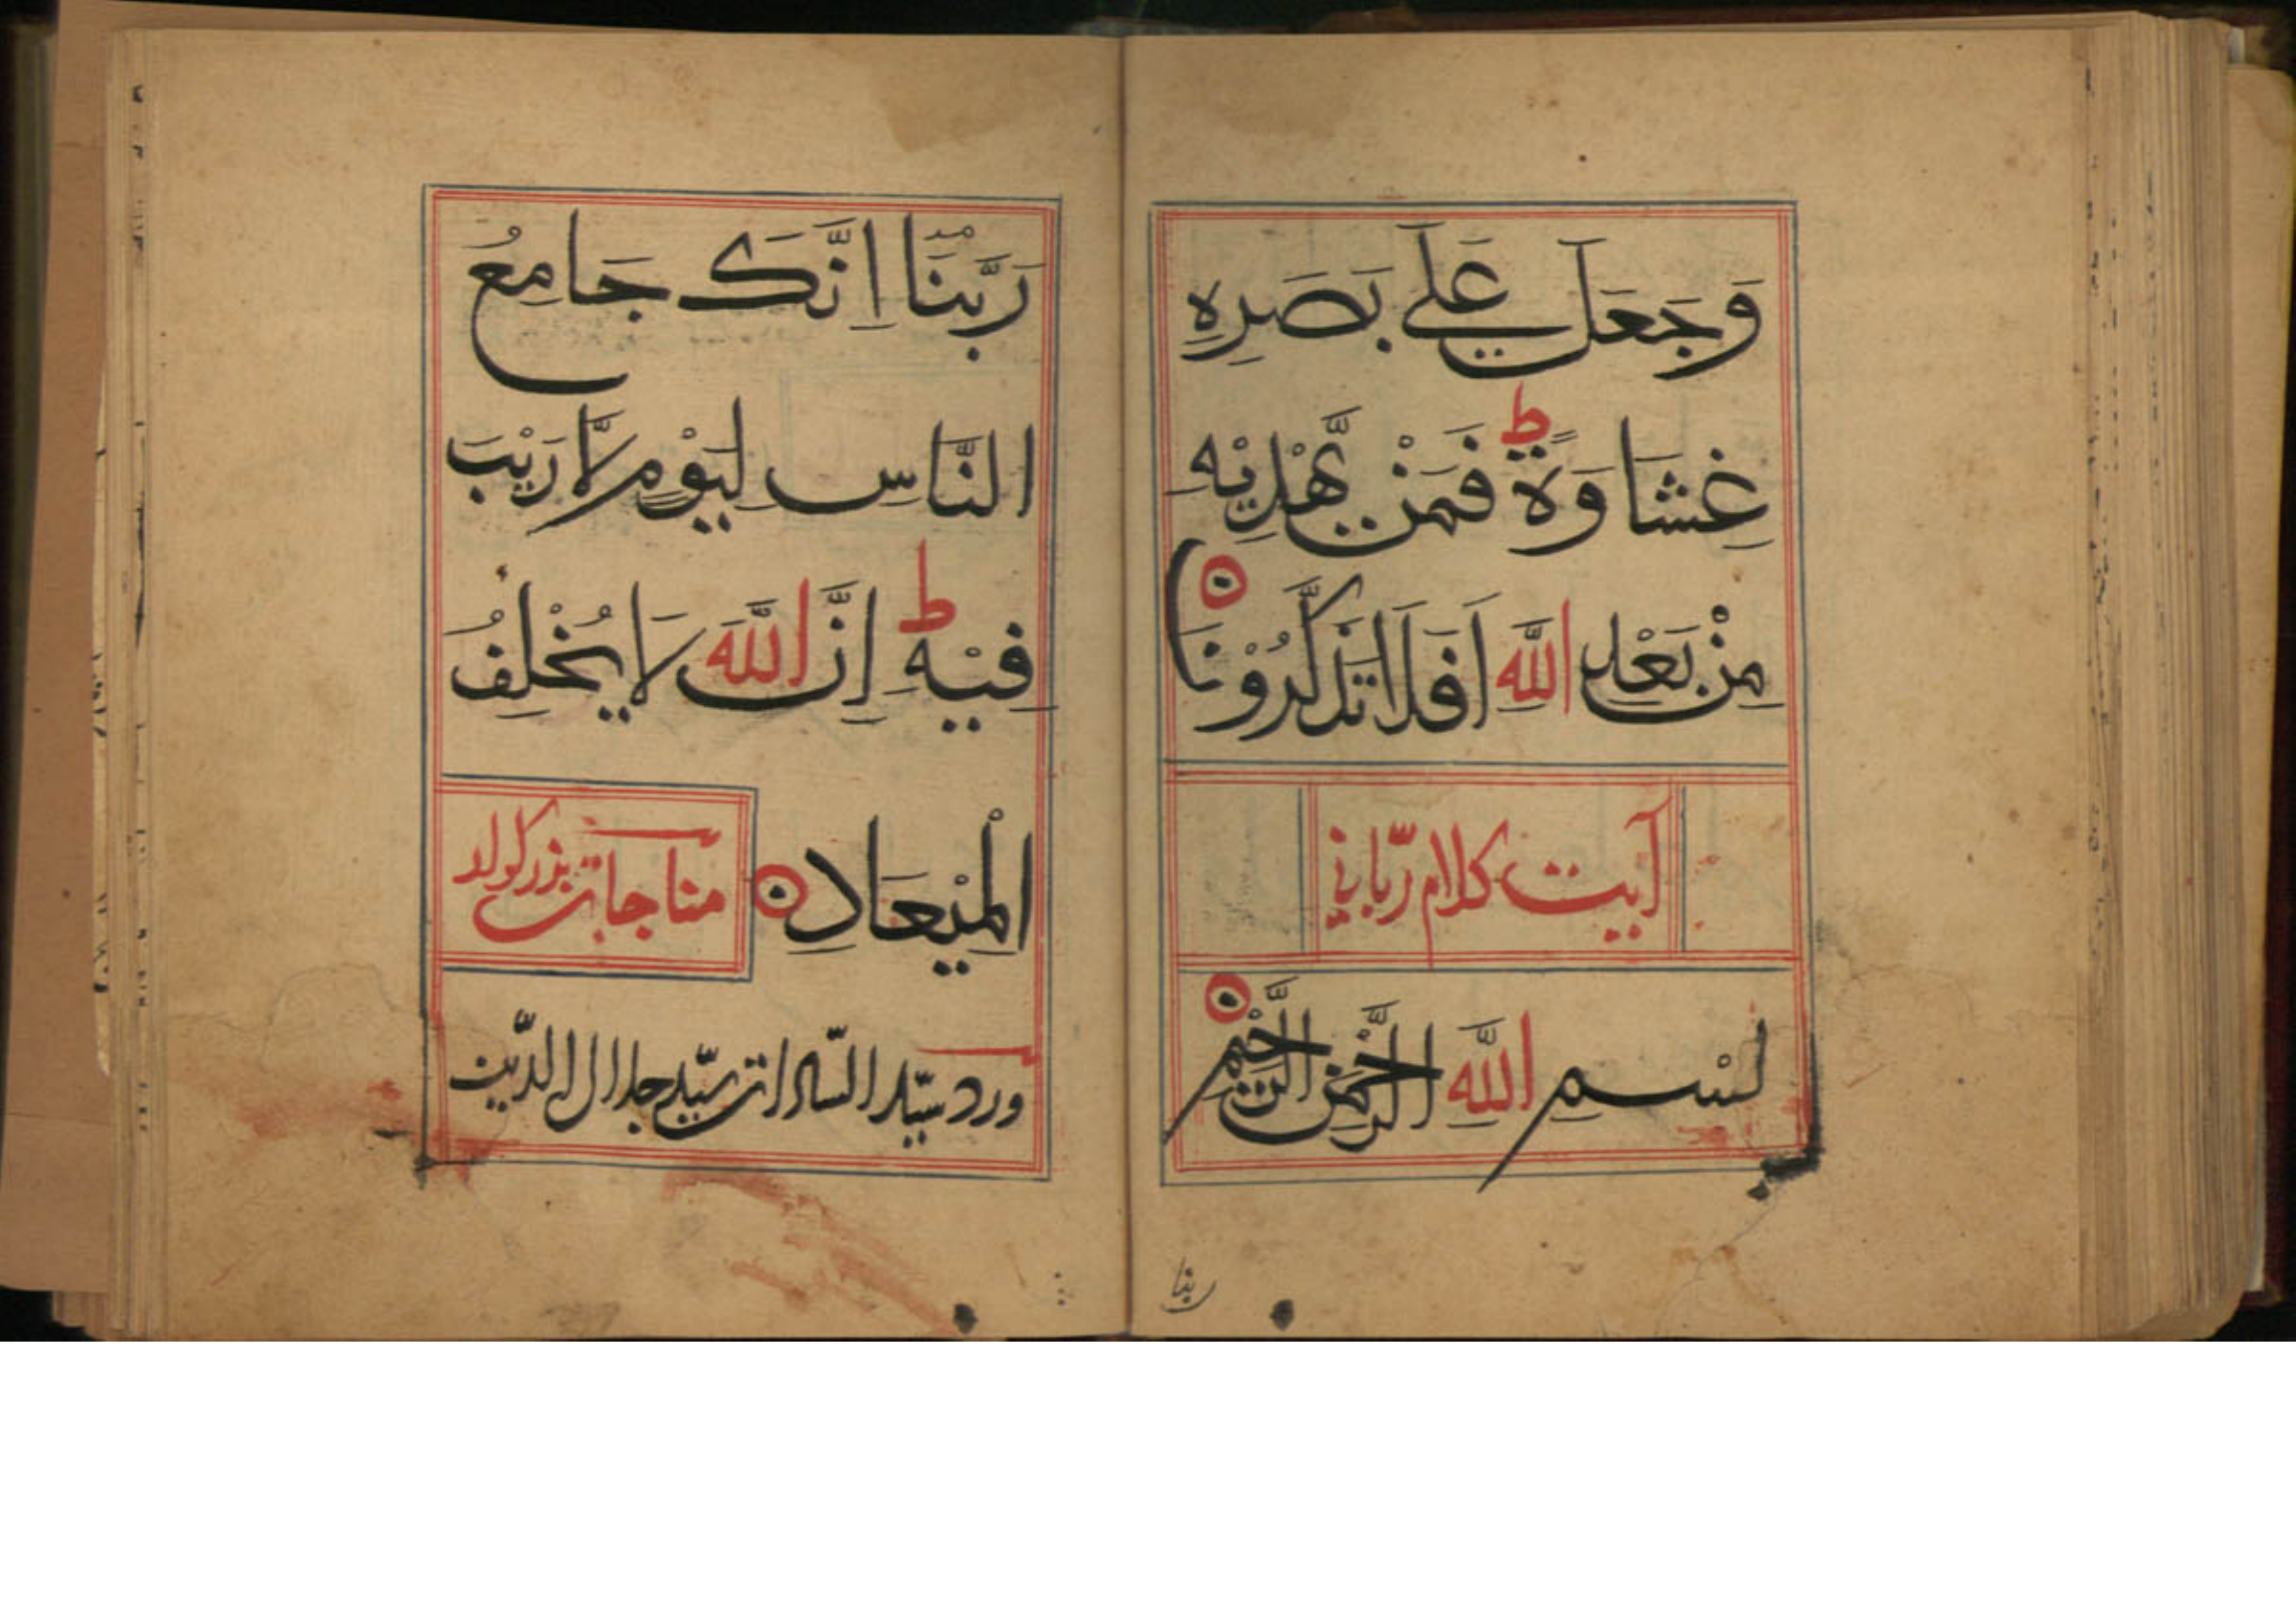 وَجَعَلَ عَلٰے بَصَرِهٖ
غِشَاوَةً ؕ فَمَنْ يَّهْدِيْهِ
مِنْۢ بَعْدِ اللّٰهِ اَفَلَا تَذَكَّرُوْنَ
آیت کلام ربّانی
بِسْمِ اللّٰهِ الرَّحْمٰنِ الرَّحِيْمِ
ربنا
رَبَّنَا اِنَّكَ جَامِعُ
النَّاسِ لِيَوْمٍ لَّا رَيْبَ
فِيْهِ ؕ اِنَّ اللّٰهَ لَا يُخْلِفُ
الْمِيْعَادَ
مناجات
ورد سیّد السّادات سیّد جلال الدّین